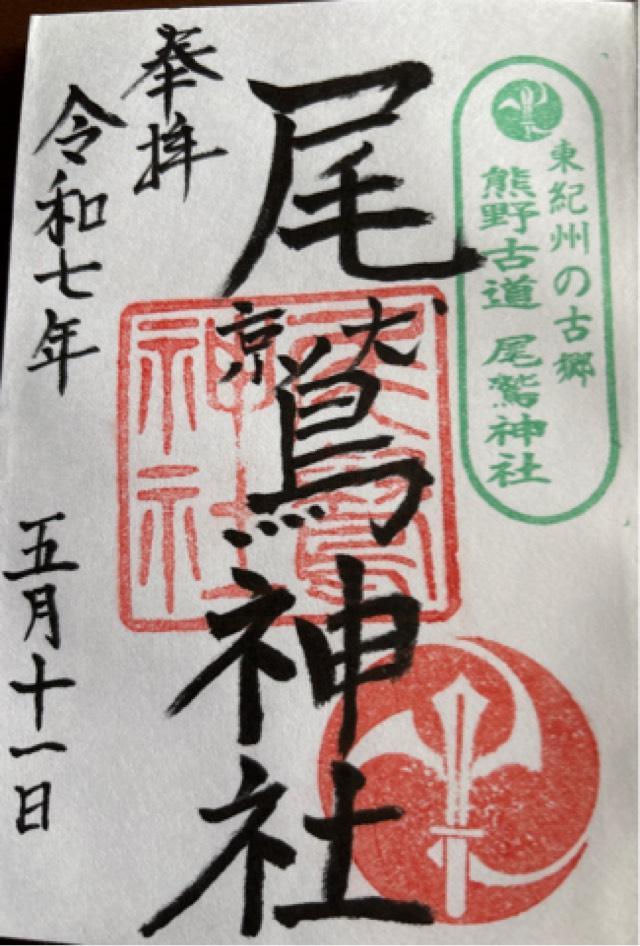 東紀州の古郷
熊野古道 尾鷲神社
尾鷲神社
奉拝
令和七年 五月十一日